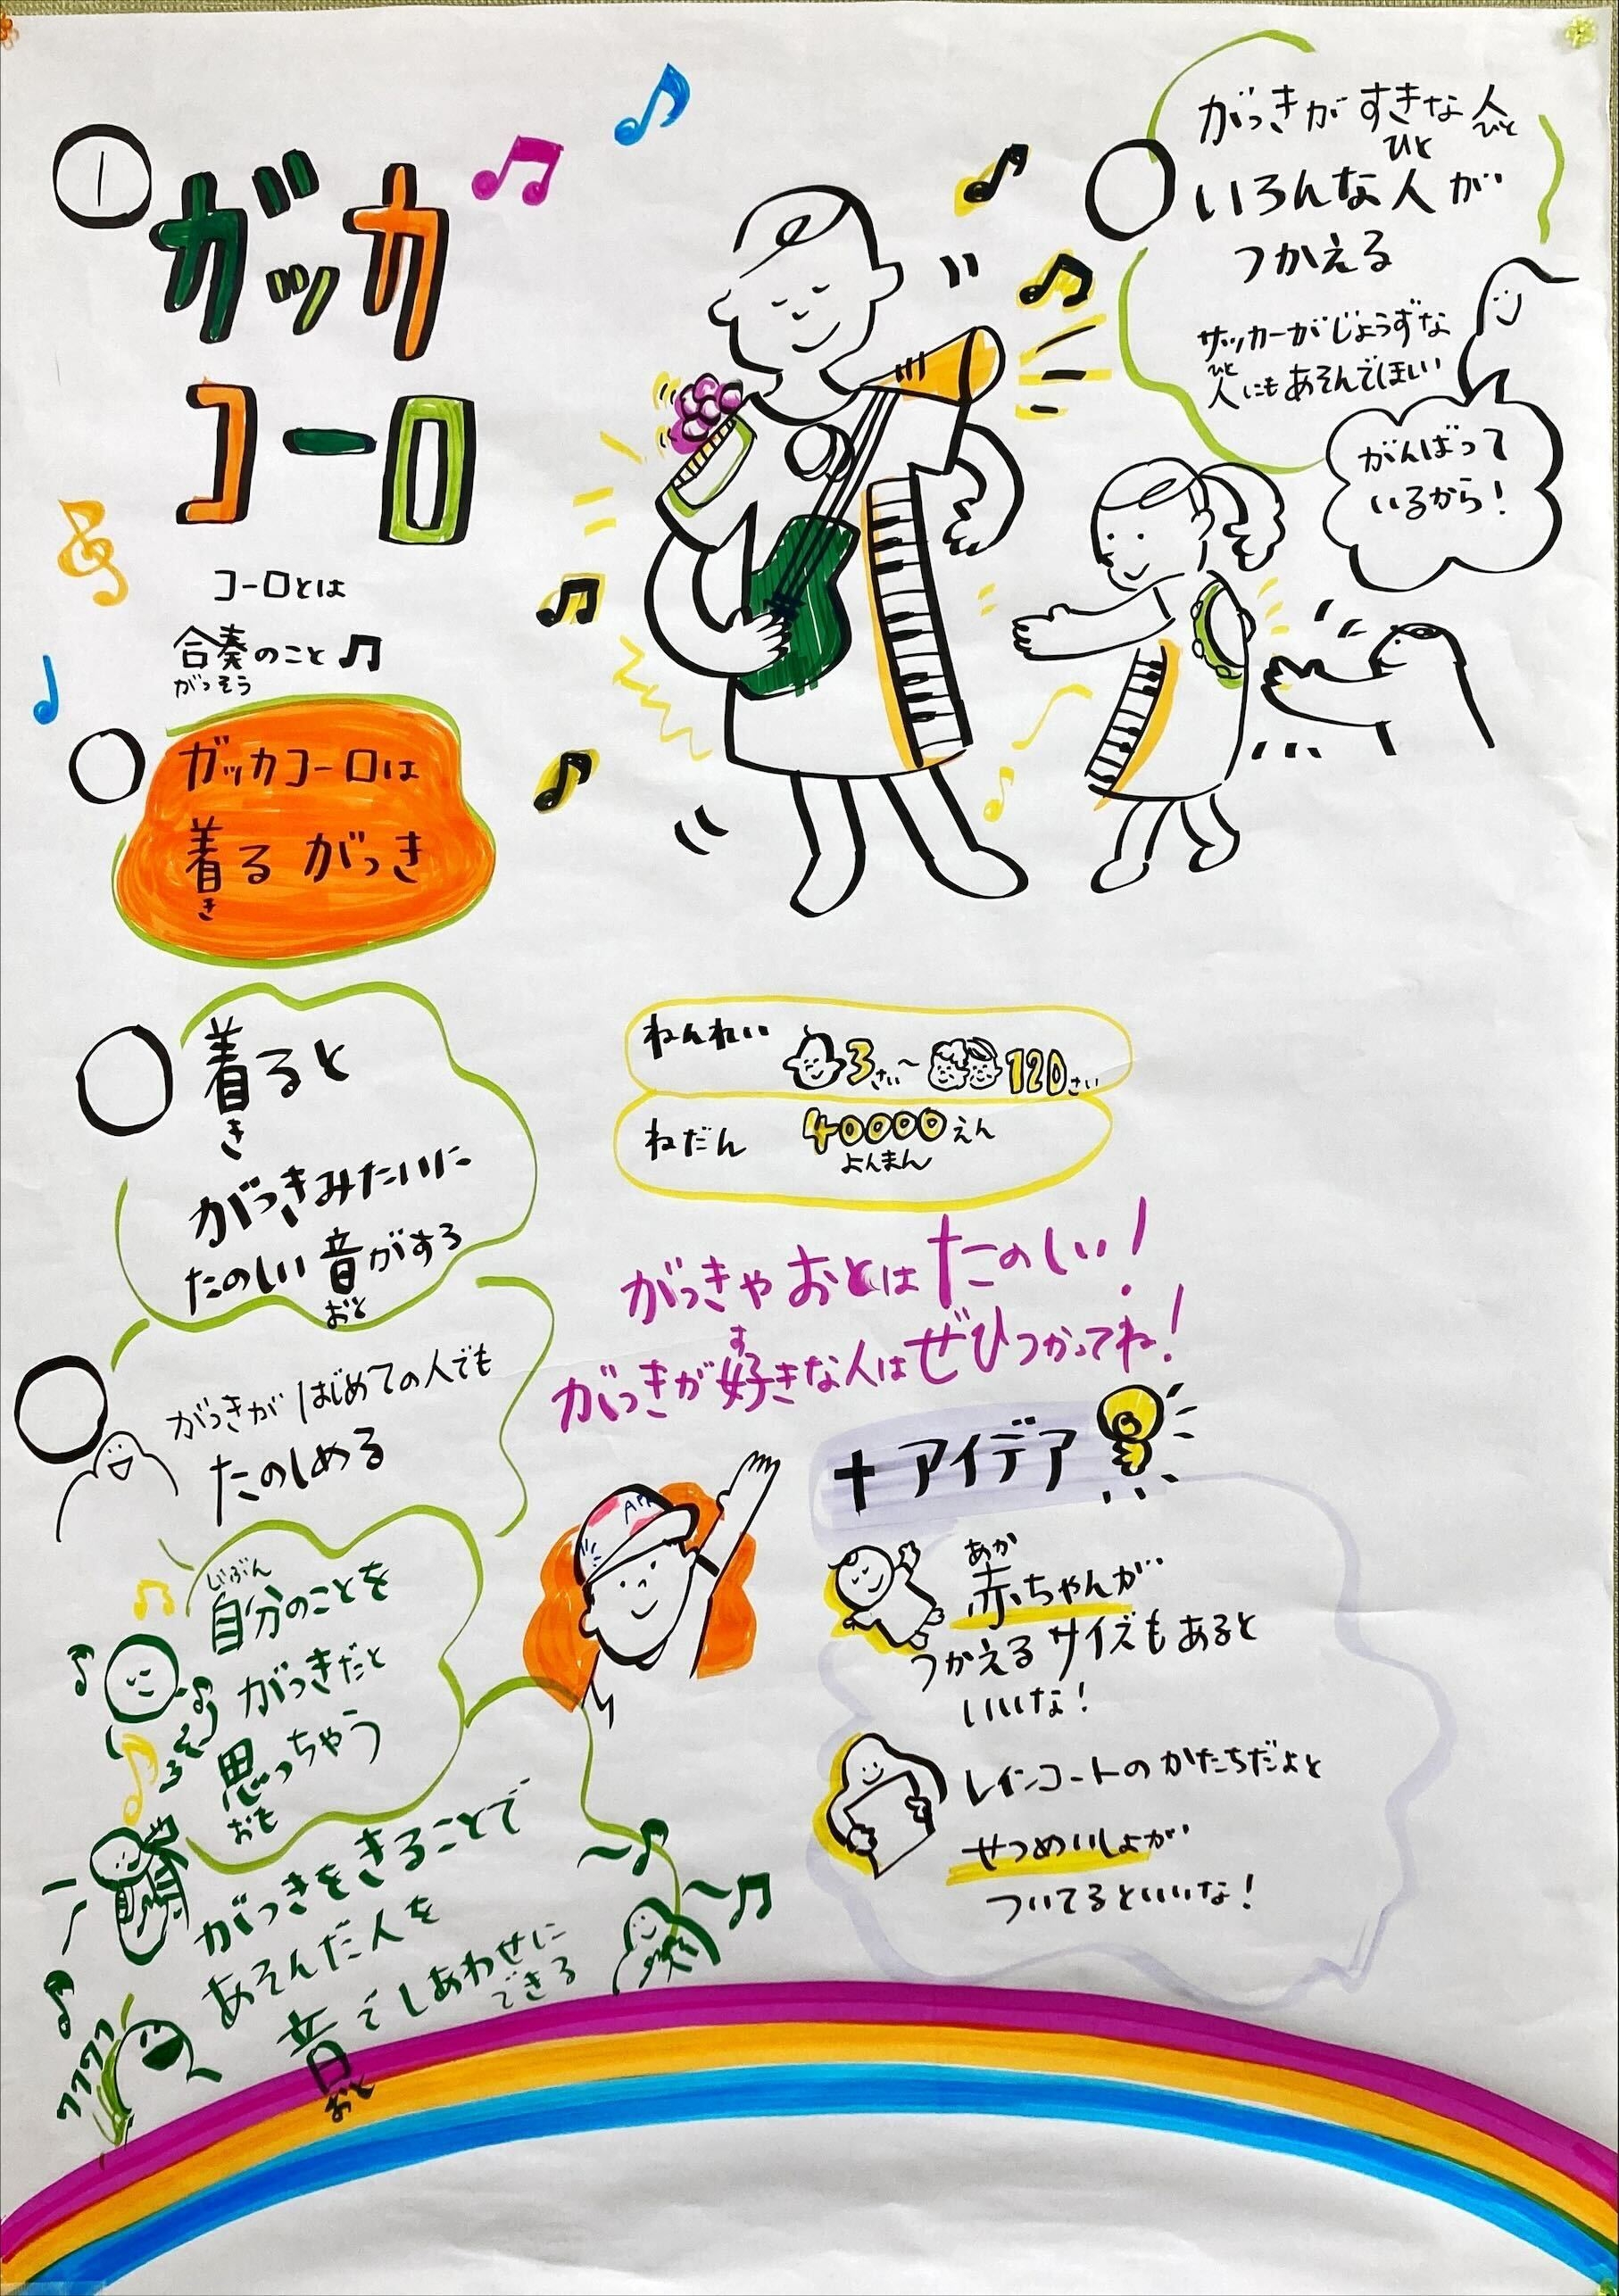 ①
ガッカ
コーロ
コーロとは
合奏のこと
がっそう
ガッカコーロは
着る がっき
き
着ると
き
がっきみたいに
たのしい音がする
おと
がっきが はじめての人でも
たのしめる
じぶん
自分のことを
がっきだと
思っちゃう
おも
がっきをきることで
あそんだ人を
音でしあわせに
できる
おと
ワクワク
がっきが すきな人
ひと
ひと
いろんな人が
つかえる
サッカーがじょうずな
ひと
人にもあそんでほしい
がんばって
いるから!
ねんれい 3さい~120さい
ねだん 40000えん
よんまん
がっきや おとは たのしい!
す
がっきが好きな人は ぜひつかってね!
+アイデア
あか
赤ちゃんが
つかえる サイズもあると
いいな!
レインコートの かたちだよと
せつめいしょが
ついてるといいな!